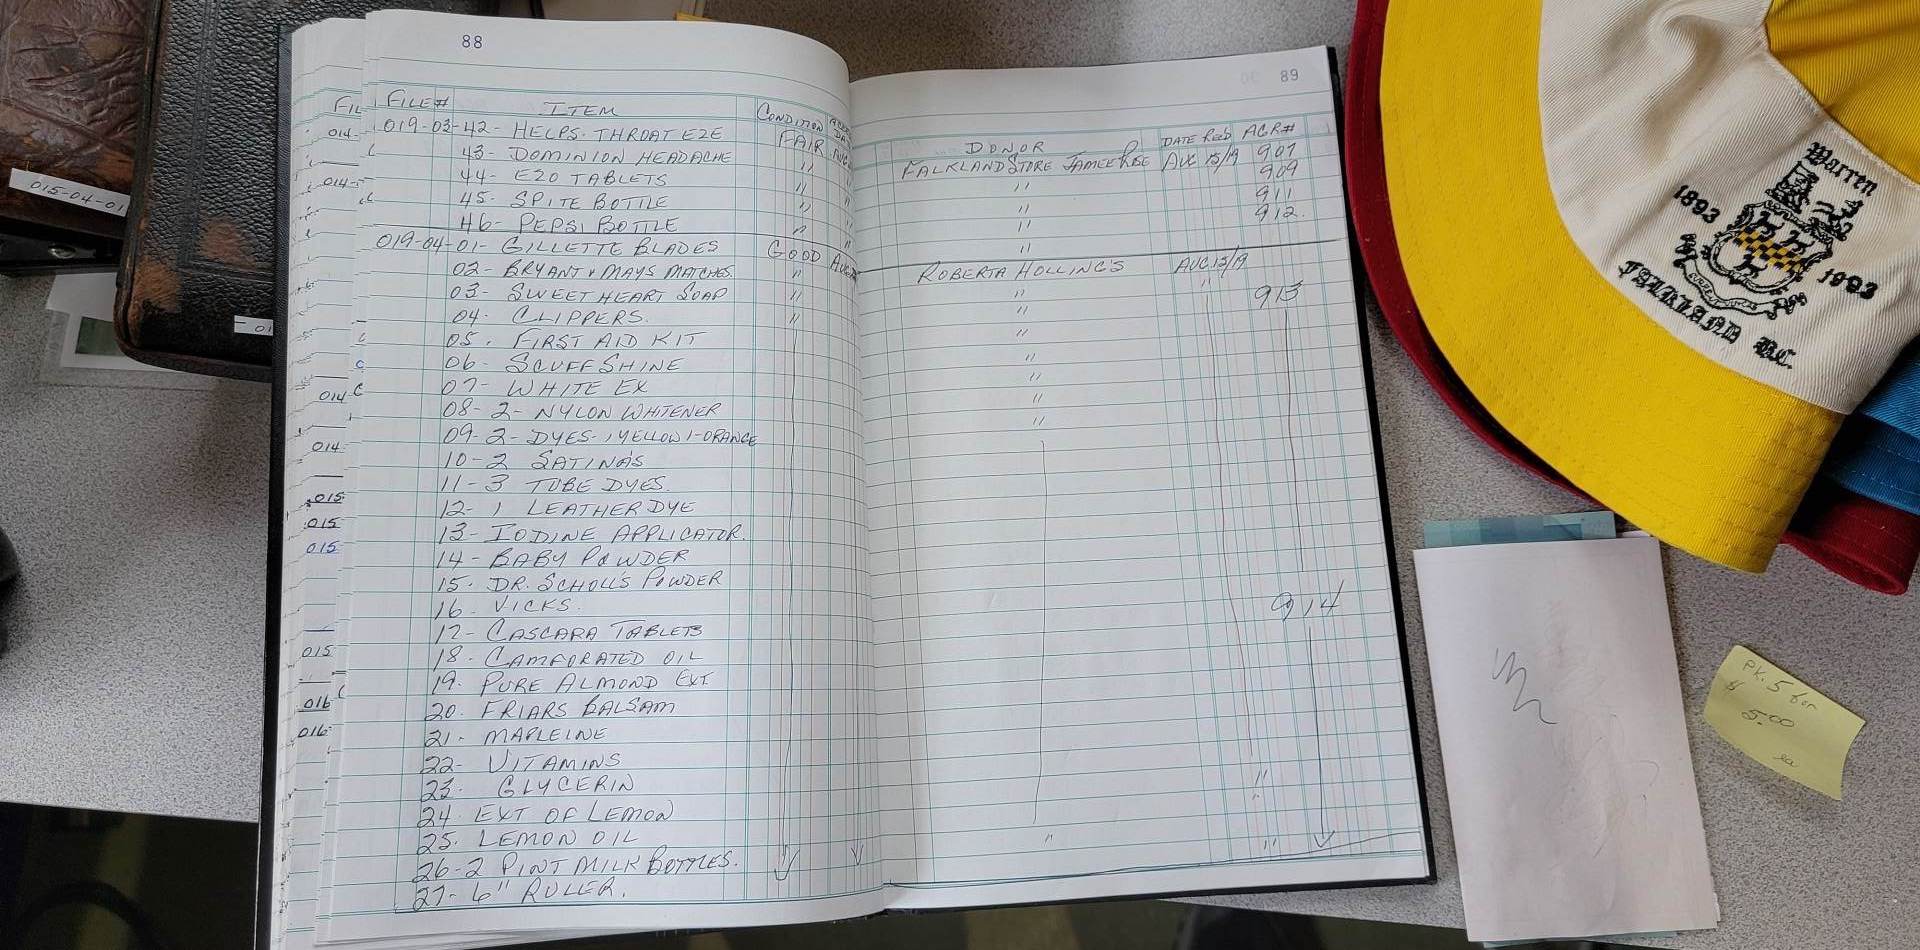 88
FILE# ITEM CONDITION
019-03-42- HELPS. THROAT EZE FAIR
43- DOMINION HEADACHE "
44- EZO TABLETS "
45- SPITE BOTTLE "
46- PEPSI BOTTLE "
019-04-01- GILLETTE BLADES GOOD
02- BRYANT & MAYS MATCHES. "
03- SWEET HEART SOAP "
04. CLIPPERS. "
05. FIRST AID KIT
06- SCUFF SHINE
07- WHITE EX
08- 2- NYLON WHITENER
09- 2- DYES- 1 YELLOW 1-ORANGE
10-2 SATINA'S
11-3 TUBE DYES.
12- 1 LEATHER DYE
13- IODINE APPLICATOR.
14- BABY POWDER
15. DR. SCHOLL'S POWDER
16. VICKS.
17- CASCARA TABLETS
18. CAMFORATED OIL
19. PURE ALMOND EXT
20. FRIARS BALSAM
21. MAPLEINE
22- VITAMINS
23. GLYCERIN
24. EXT OF LEMON
25. LEMON OIL
26-2 PINT MILK BOTTLES.
27- 6" RULER.
89
DONOR DATE Rec'd ACR#
FALKLAND STORE AUG 15/19 907
" 909
" 911
" 912.
"
ROBERTA HOLLING'S AUG 15/19
" " 913
"
"
"
"
"
"
914
"
" "
FIL
014
014
014
014
015
015
015
015
016
016
015-04-01
Warren
1893 1993
FALKLAND BC.
PK. 5 for
$ 5.00
ea